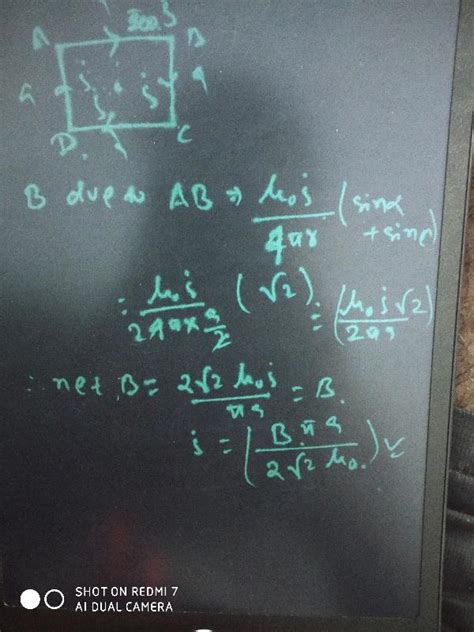 A B
a i i i a
D C
B due to AB → μ₀i / 4πr (sinα + sinβ)
= μ₀i / 4π × a/2 (√2) = (μ₀i√2 / 2πa)
∴ net B = 2√2 μ₀i / πa = B.
i = (B πa / 2√2 μ₀) ✓
SHOT ON REDMI 7
AI DUAL CAMERA